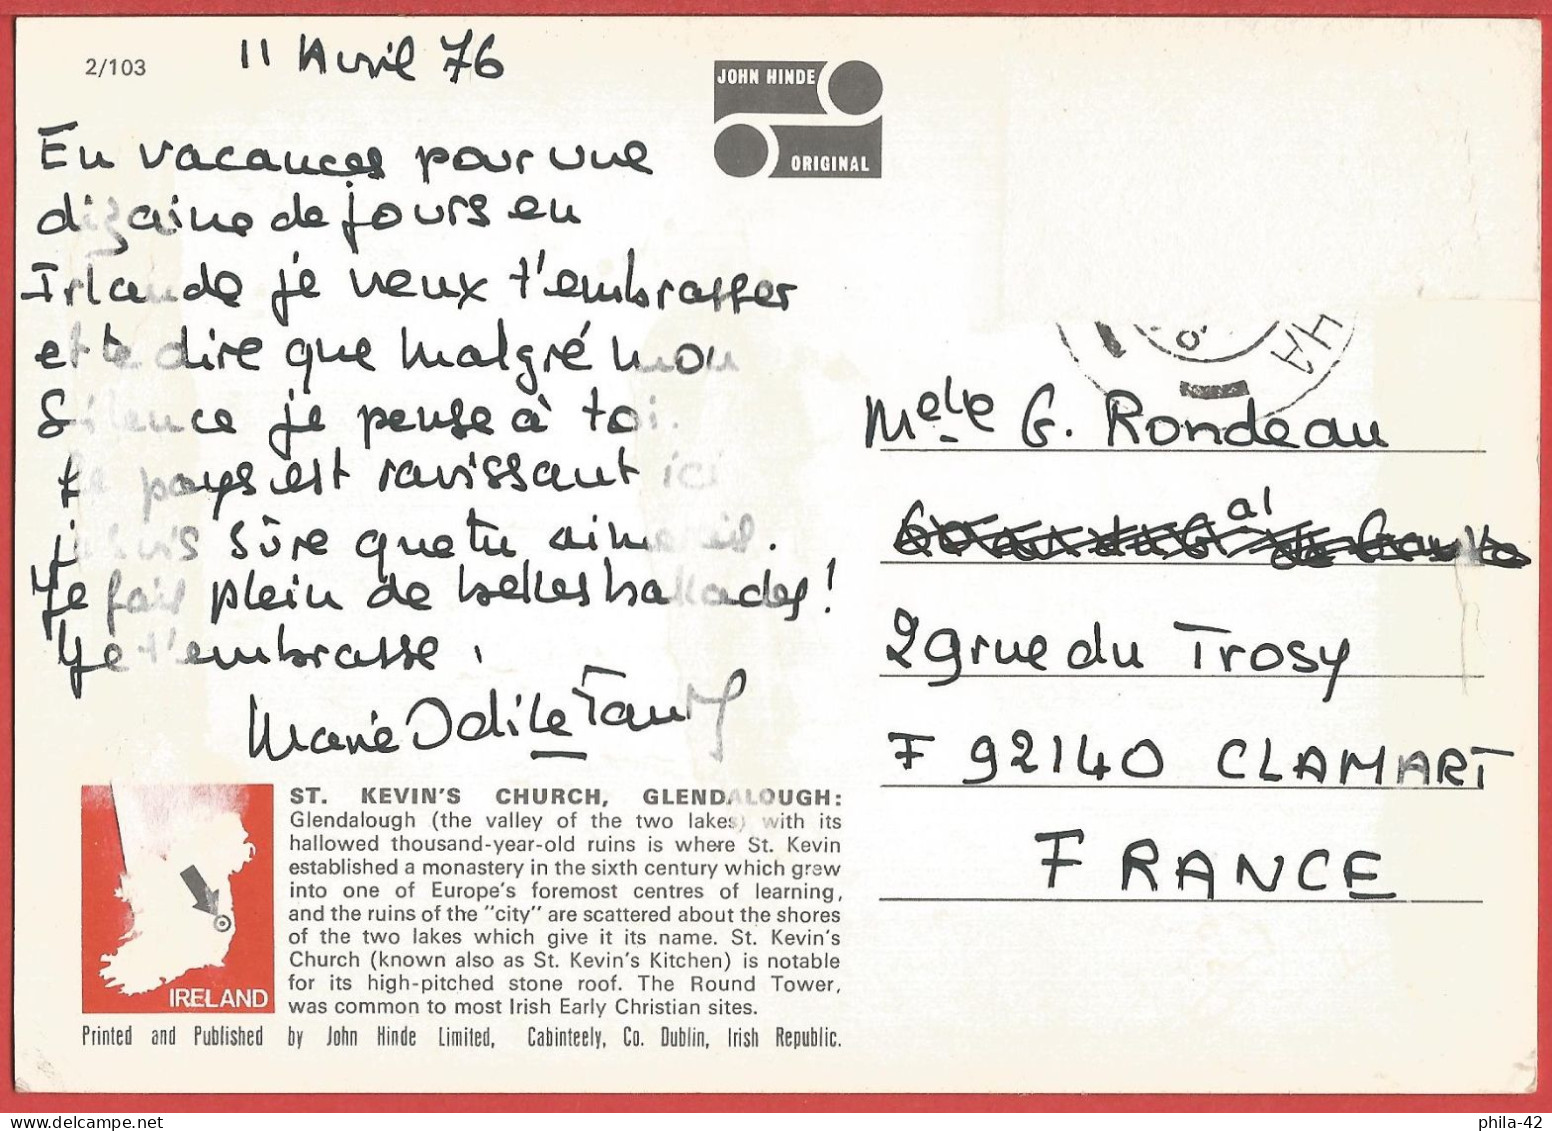 2/103
11 Avril 76
JOHN HINDE
ORIGINAL
En vacances pour une
dizaine de jours en
Irlande je veux t'embrasser
et te dire que malgré mon
silence je pense à toi.
Le pays est ravissant ici
je suis sûre que tu aimerais.
Je fais plein de belles ballades!
Je t'embrasse.
Marie Odile
HA
Melle G. Rondeau
29 rue du Trosy
F 92140 CLAMART
FRANCE
ST. KEVIN'S CHURCH, GLENDALOUGH:
Glendalough (the valley of the two lakes) with its
hallowed thousand-year-old ruins is where St. Kevin
established a monastery in the sixth century which grew
into one of Europe's foremost centres of learning,
and the ruins of the "city" are scattered about the shores
of the two lakes which give it its name. St. Kevin's
Church (known also as St. Kevin's Kitchen) is notable
for its high-pitched stone roof. The Round Tower,
was common to most Irish Early Christian sites.
IRELAND
Printed and Published by John Hinde Limited, Cabinteely, Co. Dublin, Irish Republic.
phila-42